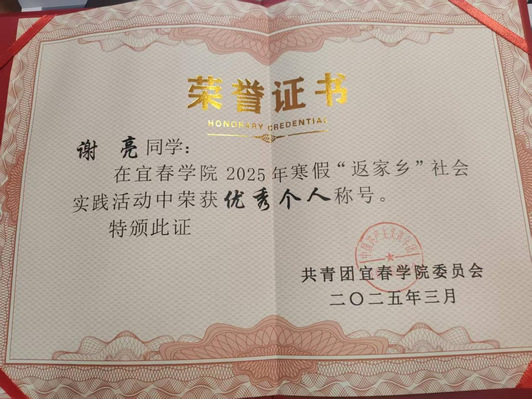 荣誉证书
HONORARY CREDENTIAL
谢 亮 同学：
在宜春学院 2025 年寒假“返家乡”社会
实践活动中荣获 优秀个人 称号。
特颁此证
共青团宜春学院委员会
二〇二五年三月